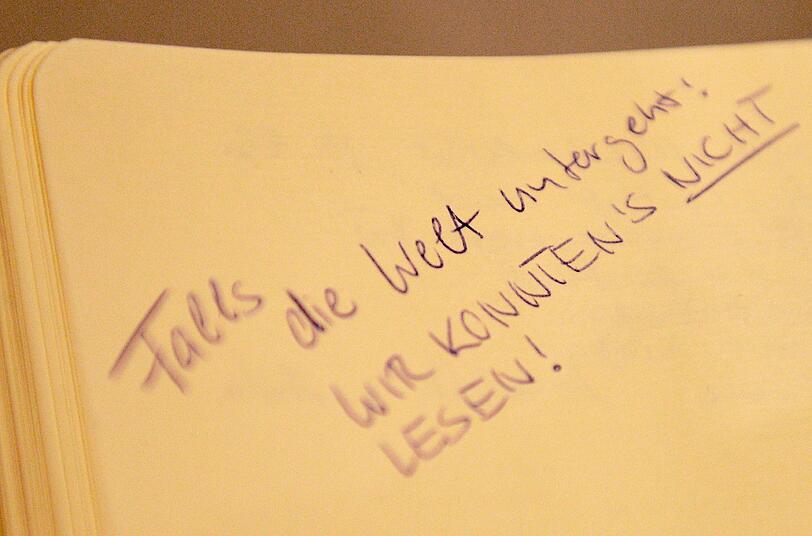 Falls die Welt untergeht!
WIR KONNTEN'S NICHT
LESEN!